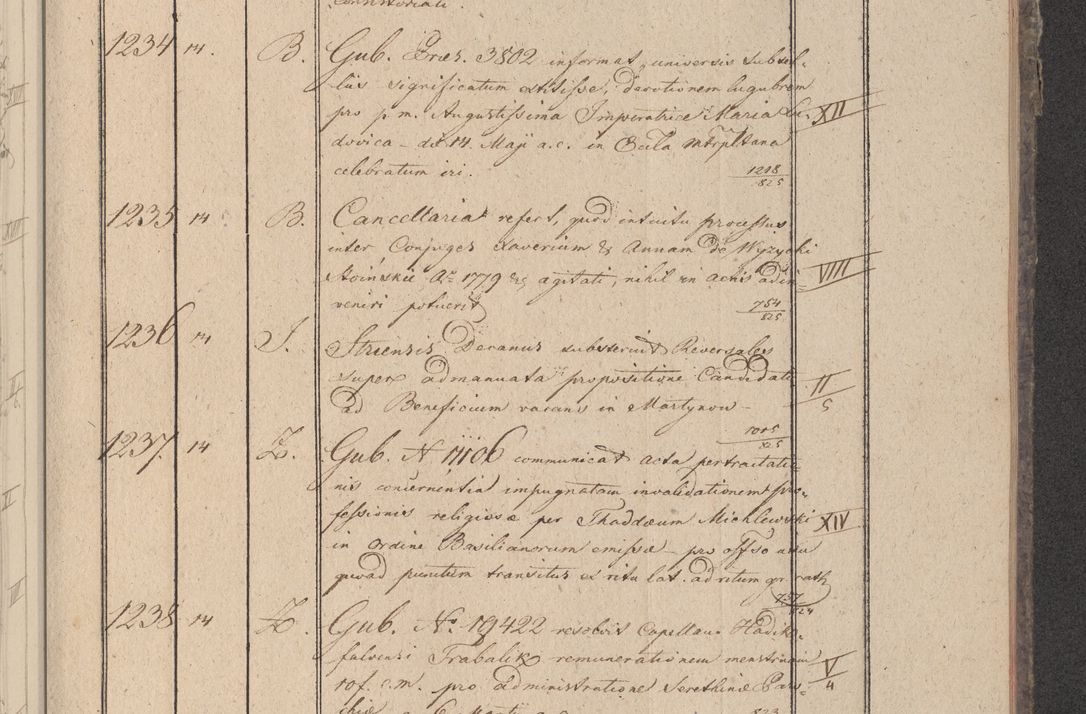 Consistoriali.
1234 14. B. Gub. Praes. 3802 informat, universis subsel-
liis significatum extitisse, devotionem lugubrem
pro p. m. Augustissima Imperatrice Maria Lu- XII
dovica – die 14. Maji a.c. in Eccla Mtrpltana
celebratum iri. 1218/825
1235 14 B. Cancellaria refert, quod intuitu processus
inter Conjuges Xaverium & Annam de Wyzycki
Stoińskie Ao 1779 & agitati, nihil in actis adin- VIII
veniri potuerit 754/825
1236 14 J. Striensis Decanus substernit Reversales
super admanuata propositione Candidati II/5
ad Beneficium vacans in Martynow –
1015/825
1237. 14 Z. Gub. N 17106 communicat acta pertractatio-
nis concernentia impugnatam invalidationem pro-
fessionis religiosae per Thaddaeum Michlewski XIV
in ordine Basilianorum emissae – pro offso usu
quoad punctum transitus ex ritu lat. ad ritum gr. cath
757/824
1238 14 Z. Gub. No. 19422 resolvit Capellano Hadik-
falvensi Trabalik remunerationem menstruam V/4
10 f. c.m. pro administratione Serethinae Paro-
chiae a 6. Martii a.c. 823